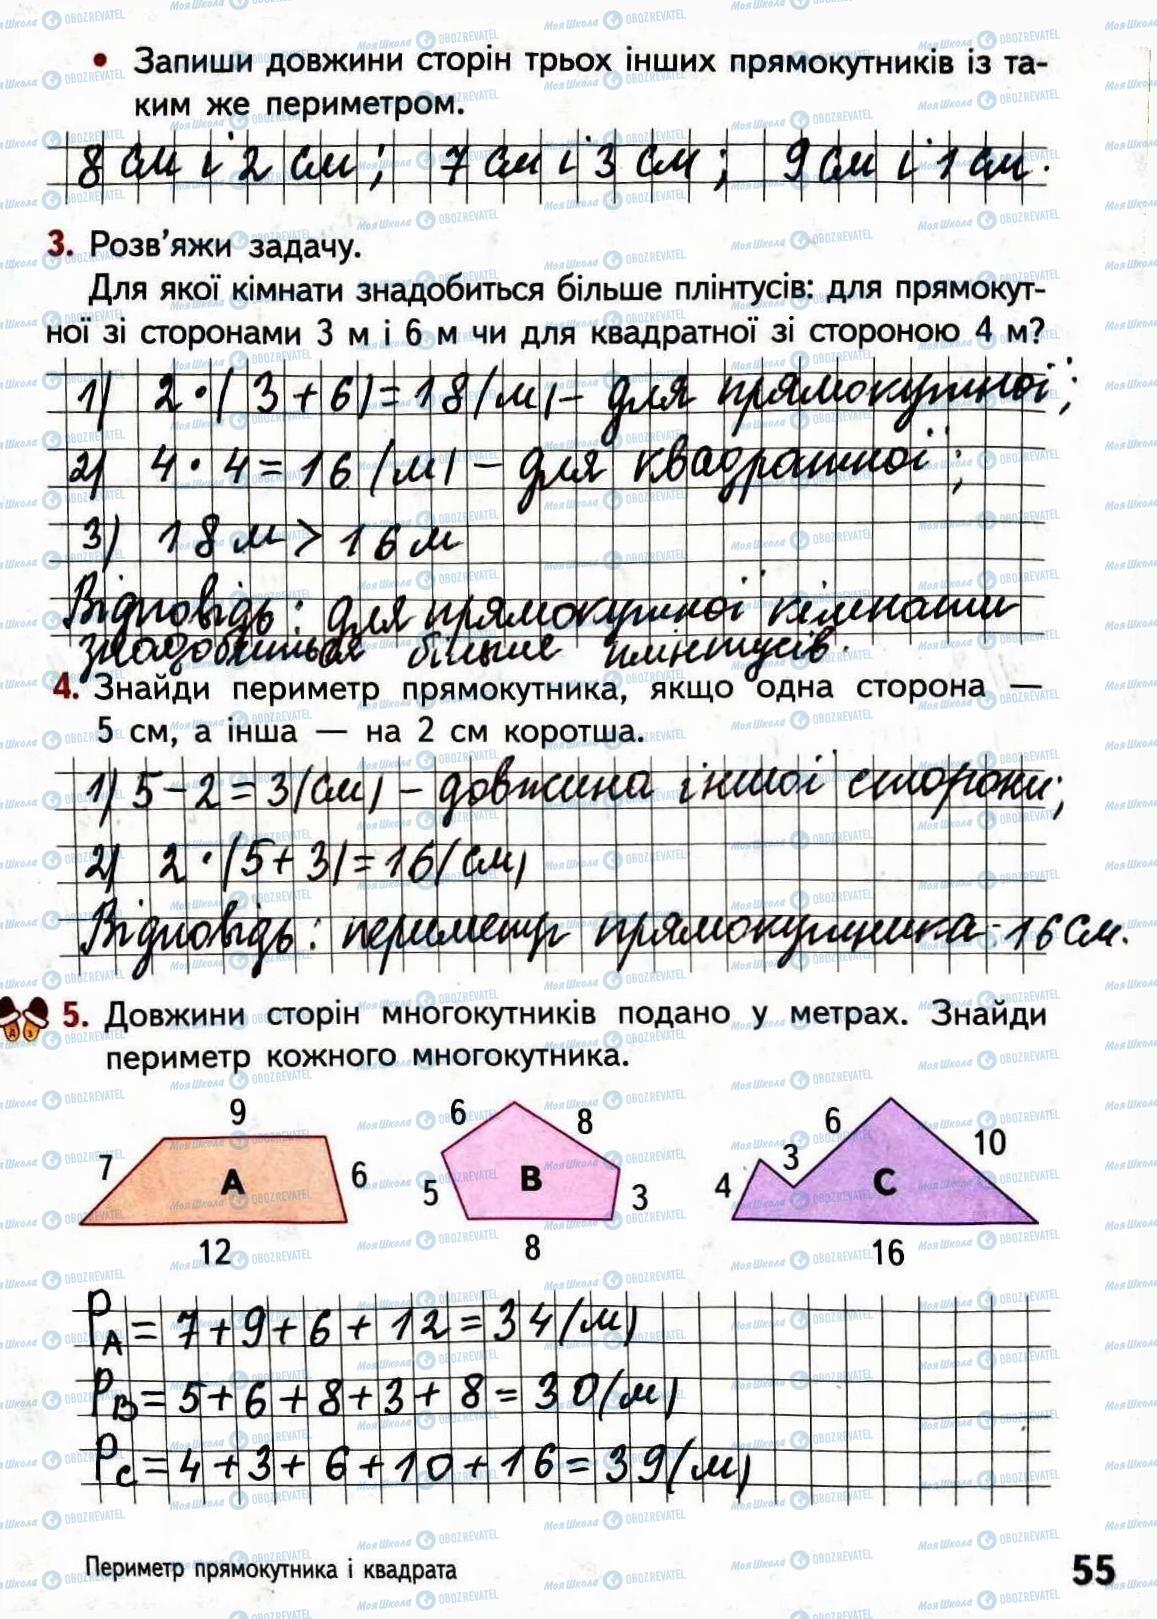 • Запиши довжини сторін трьох інших прямокутників із та-
ким же периметром.
8 см і 2 см; 7 см і 3 см; 9 см і 1 см.
3. Розв'яжи задачу.
Для якої кімнати знадобиться більше плінтусів: для прямокут-
ної зі сторонами 3 м і 6 м чи для квадратної зі стороною 4 м?
1) 2·(3+6)=18(м) – для прямокутної;
2) 4·4=16(м) – для квадратної;
3) 18 м > 16 м
Відповідь: для прямокутної кімнати
знадобиться більше плінтусів.
4. Знайди периметр прямокутника, якщо одна сторона —
5 см, а інша — на 2 см коротша.
1) 5–2=3(см) – довжина іншої сторони;
2) 2·(5+3)=16(см)
Відповідь: периметр прямокутника - 16 см.
5. Довжини сторін многокутників подано у метрах. Знайди
периметр кожного многокутника.
9
7 A 6
12
6 8
5 B 3
8
6 10
4 3 C
16
PA=7+9+6+12=34(м)
PB=5+6+8+3+8=30(м)
PC=4+3+6+10+16=39(м)
Периметр прямокутника і квадрата
55
МояШкола OBOZREVATEL